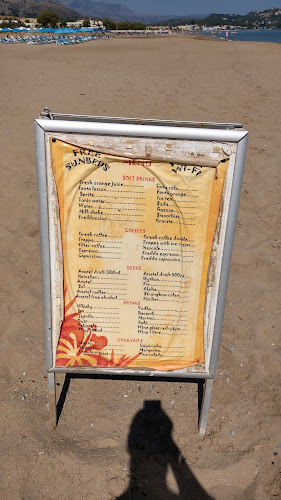 FREE SUNBEDS
MENU
Wi-Fi
SOFT DRINKS
Fresh orange juice
Fanta lemon
Sprite
Tonic water
Water
Milk shake
Freddoccino
Coca cola
Fanta orange
Ice tea
Soda
Granita
COFFEES
Greek coffee
Frappe
Filter coffee
Espresso
Capuccino
Greek coffee double
Frappe with ice cream
Nescafe
Freddo espresso
Freddo cappucino
BEERS
Amstel draft 300ml
Heineken
Amstel
Sol
Amstel radler
Amstel free alcohol
Amstel draft 500ml
Mythos
Fix
Alpha
Strongbow cider
Fischer
DRINKS
Whisky
Tequila
Vodka
Bacardi
Martini
Raki
Wine glass
Wine 1 litre
COCKTAILS
Mojito
Caipirinha
Margarita
Pina colada